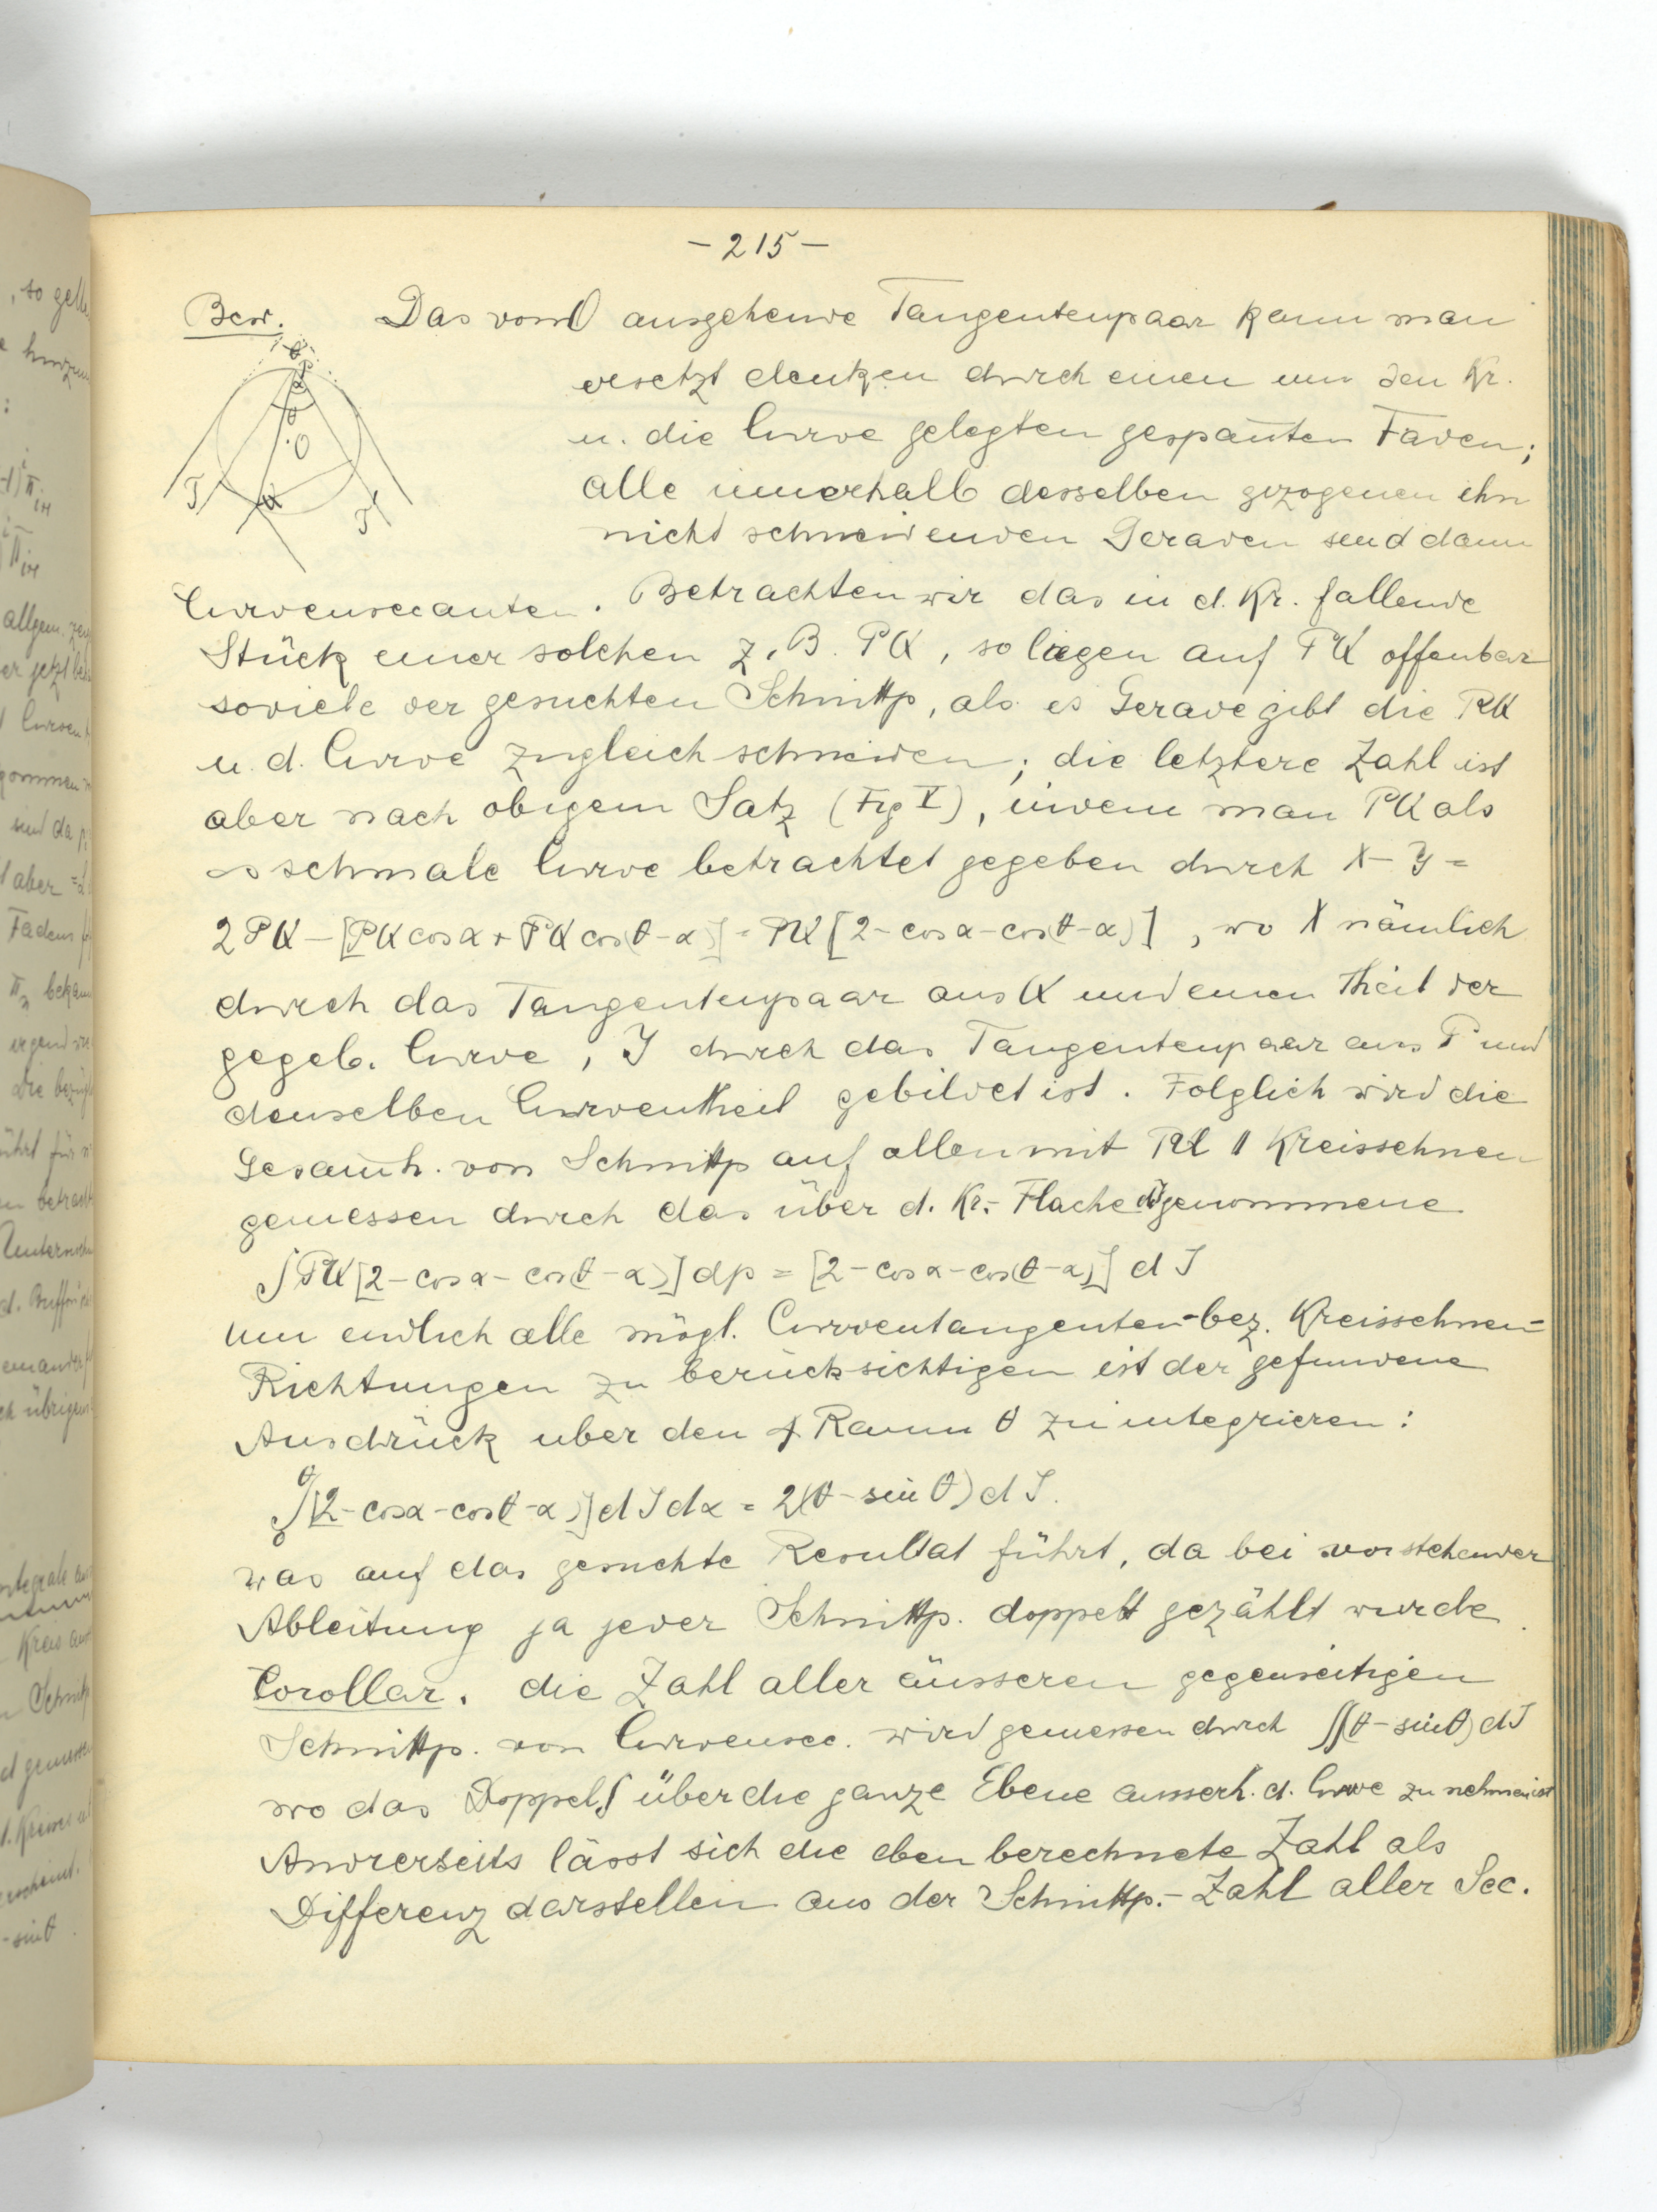 - 215 -
Bew. Das von O ausgehende Tangentenpaar kann man
ersetzt denken durch einen um den Kr.
u. die Curve gelegten gespan̄ten Faden;
alle innerhalb desselben gezogenen ihn
nicht schneidenden Geraden sind dann
Curvensecanten. Betrachten wir das in d. Kr. fallende
Stück einer solchen z. B. PQ, so liegen auf PQ offenbar
soviele der gesuchten Schnittp, als es Gerade gibt die PQ
u. d. Curve zugleich schneiden; die letztere Zahl ist
aber nach obigem Satz (Fig V), indem man PQ als
∞ schmale Curve betrachtet gegeben durch X - Y =
2 PQ - [PQ cos α + PQ cos(θ - α)] = PQ [2 - cos α - cos(θ - α)], wo X nämlich
durch das Tangentenpaar aus Q und einen Theil der
gegeb. Curve, Y durch das Tangentenpaar aus P und
denselben Curventheil gebildet ist. Folglich wird die
Gesam̄th. von Schnittp auf allen mit PQ ∥ Kreissehnen
gemessen durch das über d. Kr.- Fläche dJ genommene
∫ PQ [2 - cos α - cos(θ - α)] dp = [2 - cos α - cos(θ - α)] d J
Um endlich alle mögl. Curventangenten- bez. Kreissehnen-
Richtungen zu berücksichtigen ist der gefundene
Ausdrück uber den ∢ Raum θ zu integrieren:
∫₀^θ [2 - cos α - cos(θ - α)] d J dα = 2(θ - sin θ) d J.
was auf das gesuchte Resultat führt, da bei vorstehender
Ableitung ja jeder Schnittp. doppelt gezählt wurde.
Corollar. die Zahl aller äusseren gegenseitigen
Schnittp. von Curvensec. wird gemessen durch ∬(θ - sin θ) dJ
wo das Doppel∫ über die ganze Ebene ausserh. d. Curve zu nehmen ist
Andrerseits lässt sich die eben berechnete Zahl als
Differenz darstellen aus der Schnittp.- Zahl aller Sec.